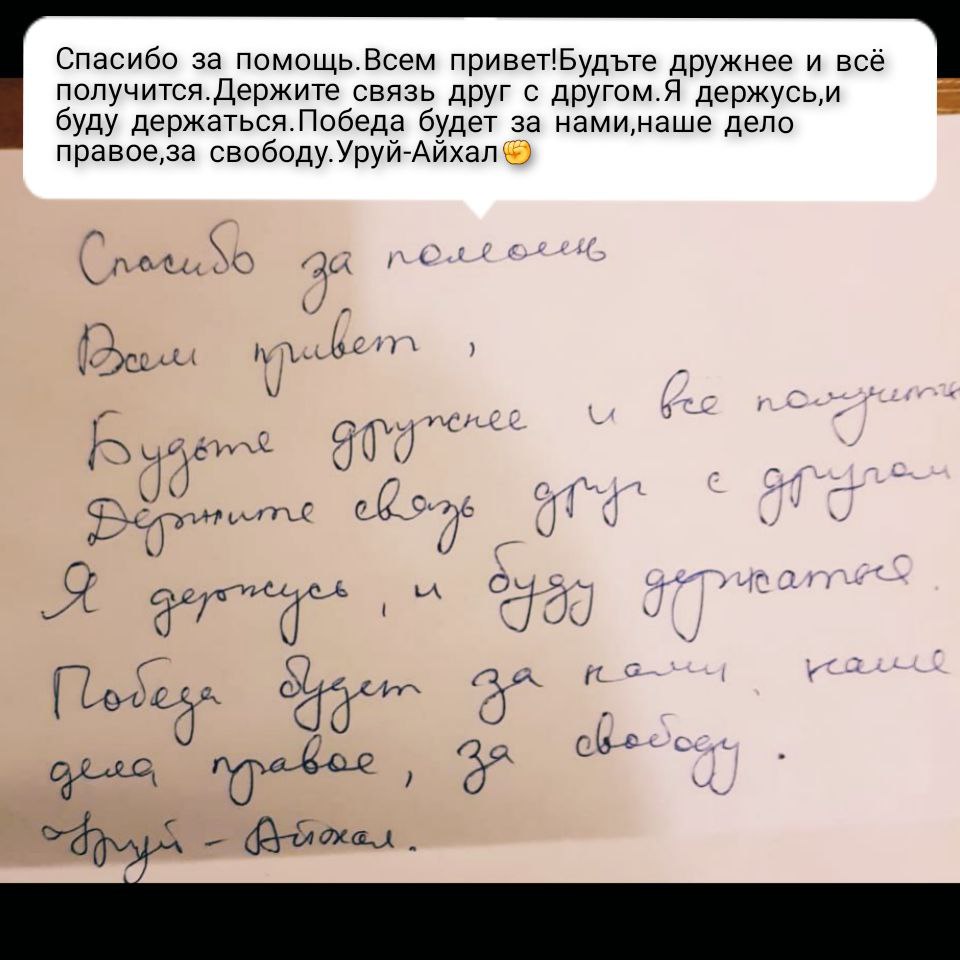 Спасибо за помощь.Всем привет!Будъте дружнее и всё
получится.Держите связь друг с другом.Я держусь,и
буду держаться.Победа будет за нами,наше дело
правое,за свободу.Уруй-Айхал✊
Спасибо за помощь
Всем привет,
Будьте дружнее и всё получится
Держите связь друг с другом
Я держусь, и буду держаться.
Победа будет за нами, наше
дела правое, за свободу.
Уруй - Айхал.